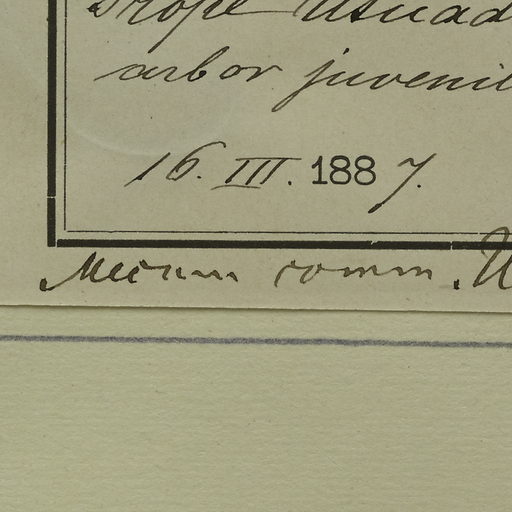 Prope Usuad
arbor juvenil
16. III. 1887.
Mecum comm. U